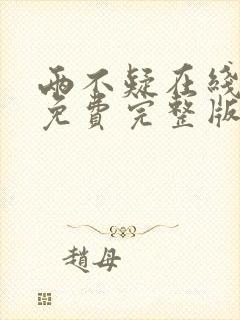 兩不疑在綫
免費完整版
趙母